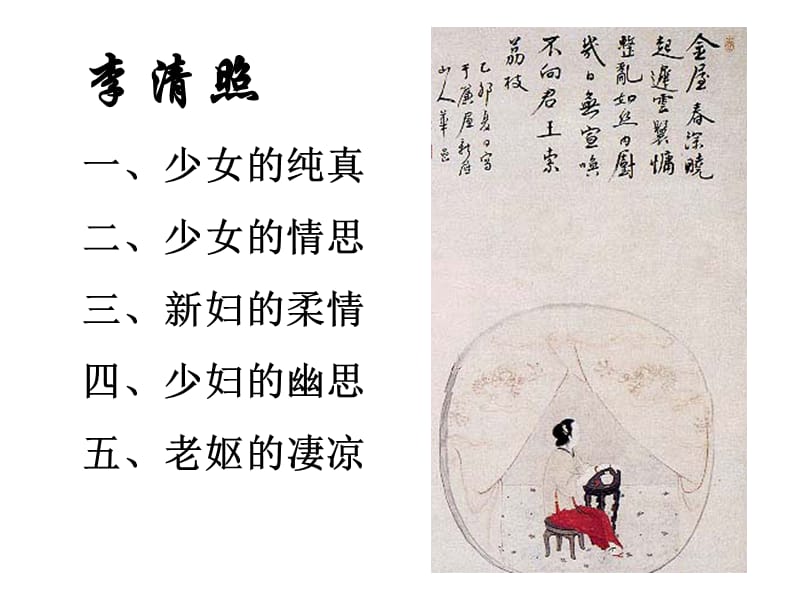 李清照
一、少女的纯真
二、少女的情思
三、新妇的柔情
四、少妇的幽思
五、老妪的凄凉
金屋春深晓
起遲雲鬟慵
整亂如丝内厨
幾日無宣喚
不向君王索
荔枝
乙卯夏日寫
于廉屋新府
山人華嵒